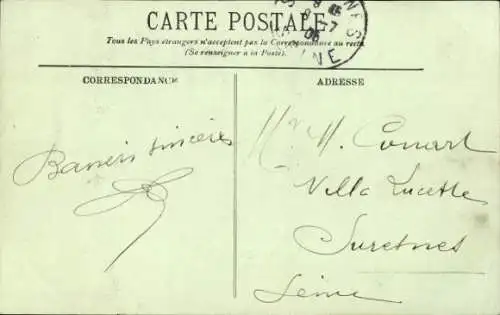 CARTE POSTALE
Tous les Pays étrangers n'acceptent pas la Correspondance au recto
(Se renseigner à la Poste).
CORRESPONDANCE
ADRESSE
Baisers sincères
H. Conart
Villa Lucette
Suresnes
Seine
8-7
05